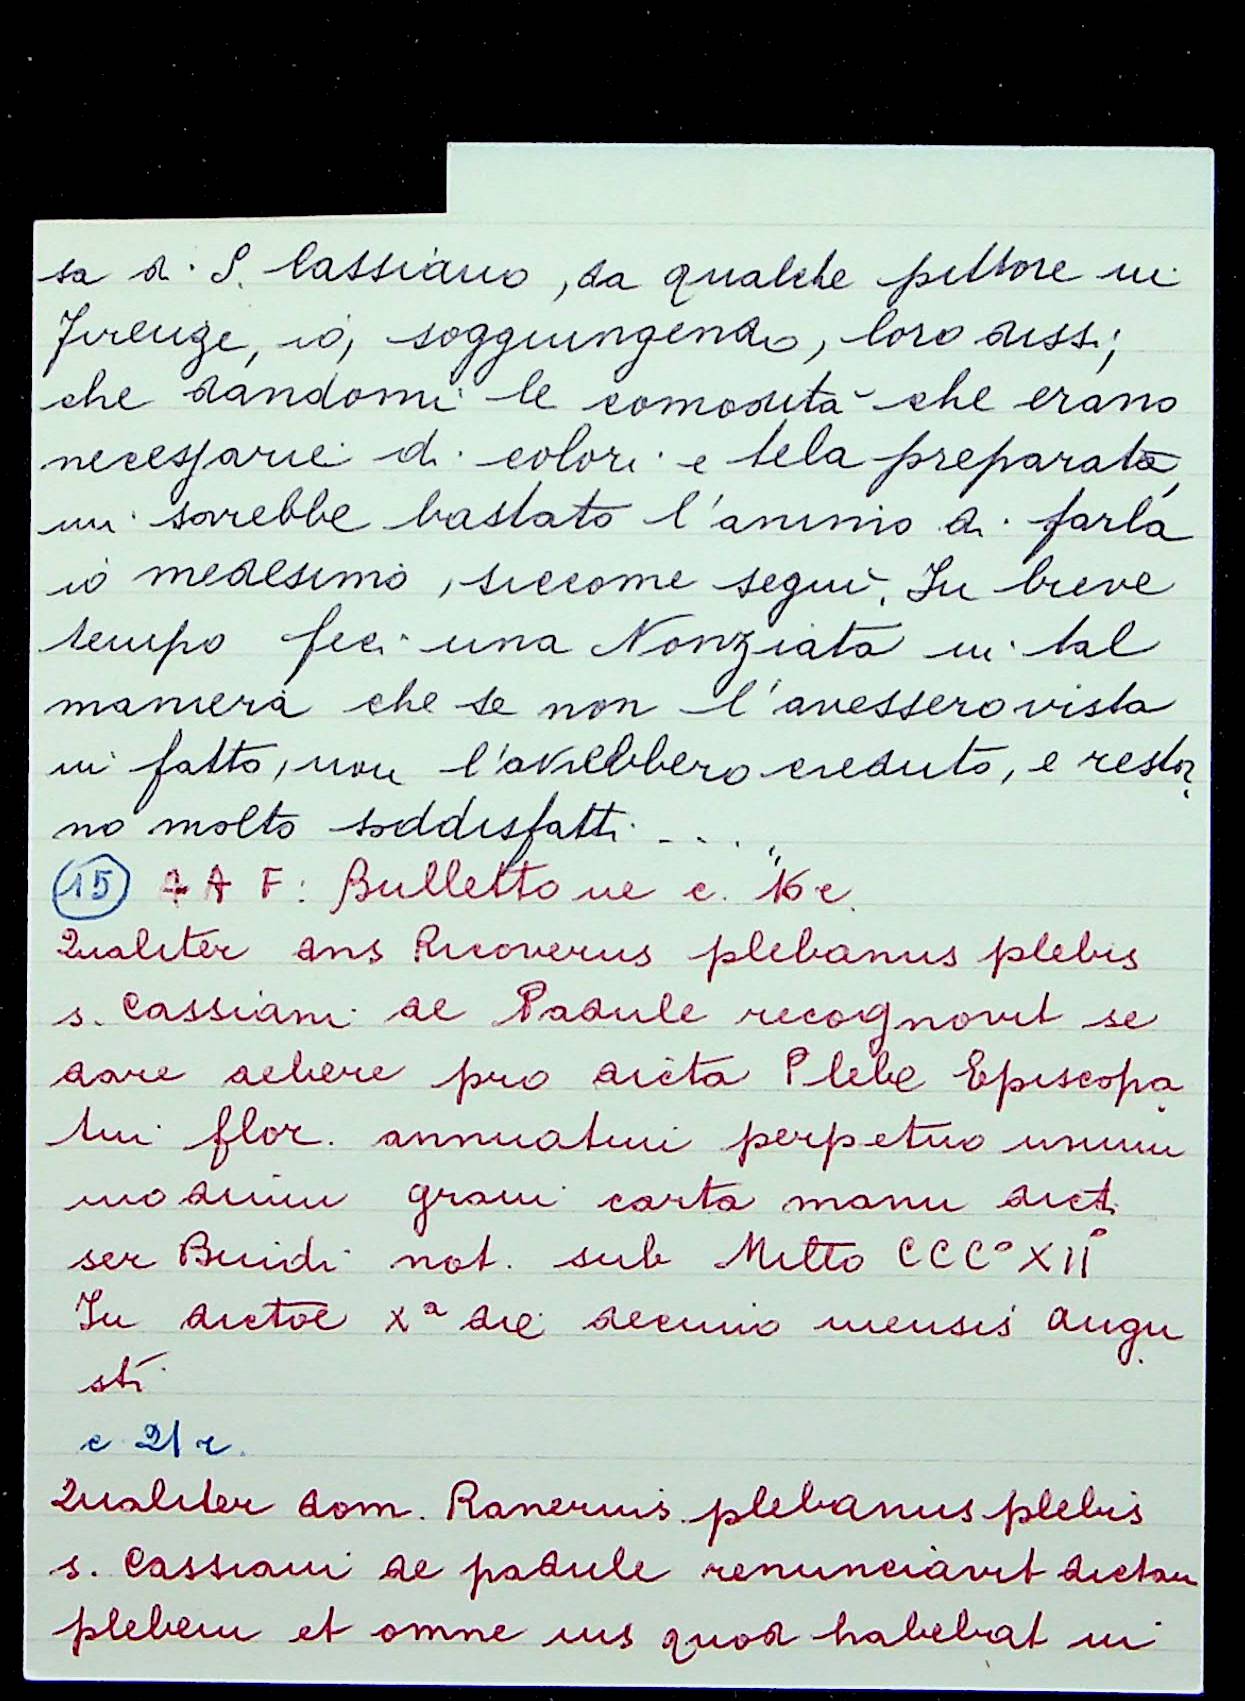 sa di S. Cassiano, da qualche pittore in
Firenze, io, soggiungendo, loro dissi;
che dandomi le comodità che erano
necessarie di colori e tela preparata,
mi sarebbe bastato l'animo di farla
io medesimo, siccome seguì. In breve
tempo feci una Nonziata in tal
maniera che se non l'avessero vista
in fatto, non l'avrebbero creduto, e resto
no molto soddisfatti....."
15 A A F: Bullettone c. 16 r.
Qualiter dns Ricoverus plebanus plebis
s. Cassiani de Padule recognovit se
dare debere pro dicta Plebe Episcopa
tui flor. annuatim perpetuo unum
modium grani carta manu dict.
ser Buidi not. sub Mitto CCC° XII°
In dictoe Xª die decimo mensis Augu
sti
c 21 r.
Qualiter dom. Ranerius plebanus plebis
s. Cassiani de padule renunciavit dictam
plebem et omne ius quod habebat in